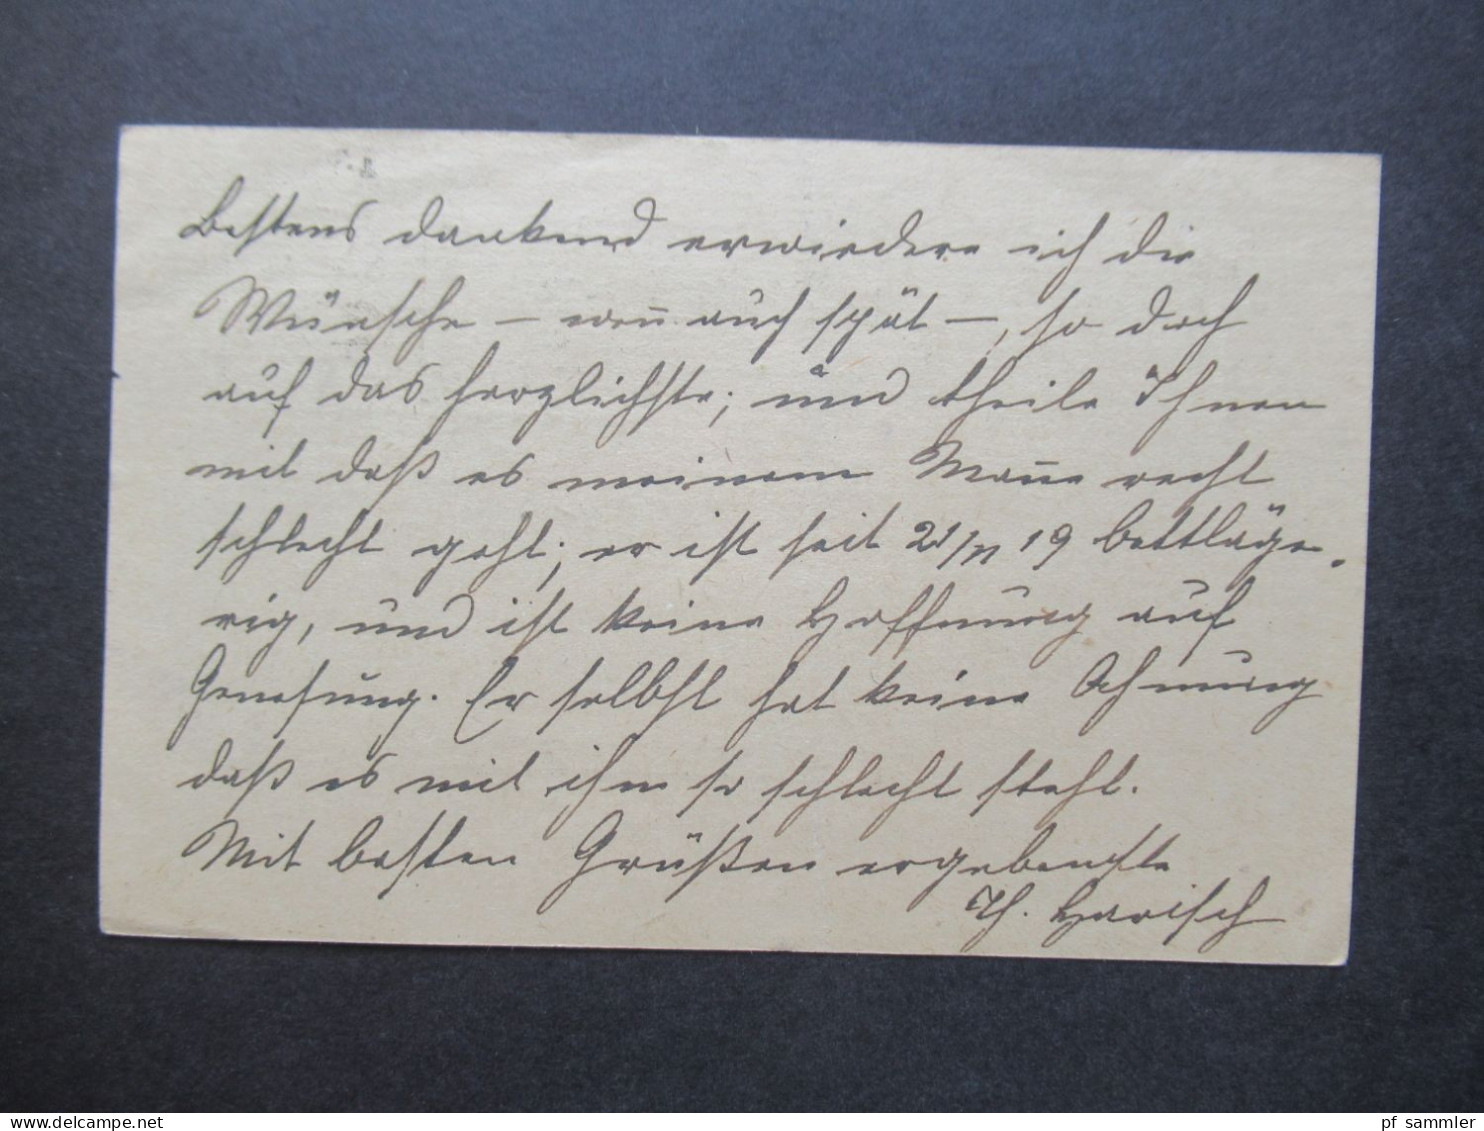 Bestens dankend erwiedere ich die
Wünsche – wenn auch spät –, so doch
auf das herzlichste; und theile Ihnen
mit daß es meinem Manne recht
schlecht geht; er ist seit 21/VI 19 bettläge-
rig, und ist keine Hoffnung auf
Genesung. Er selbst hat keine Ahnung
daß es mit ihm so schlecht steht.
Mit besten Grüßen ergebenste
Th. Harisch
www.delcampe.net
pf_sammler